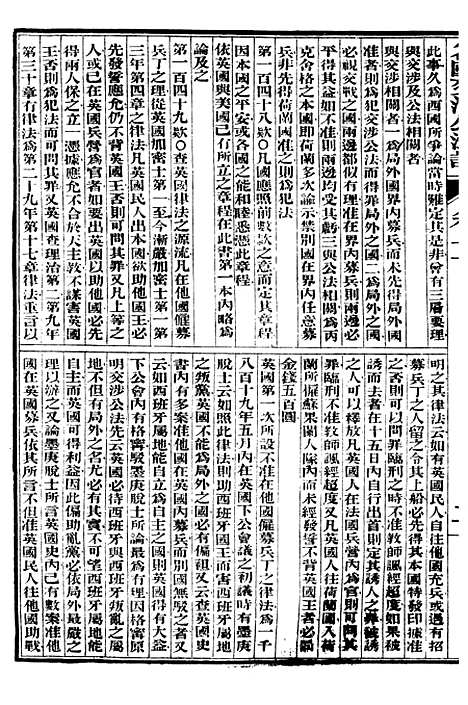 此事久爲西國所爭論當時難定其是非曾有三層要理
與交涉及公法相關者
與交涉相關者一爲局外國界內募兵而未先得局外國
准者則爲犯交涉公法而得罪局外之國二爲局外之國
必視交戰之國兩邊都有理倘准在界內募兵則兩邊必
平用其所准者否則其受虧三與公法相
克舍格之本國即荷蘭多次議院示准在其界內任意募
兵非先得荷蘭國准之則爲犯法
第一百四十八欵○凡國應照前數欵之意而定其章程
因本國之平安或各國之能和睦悉憑此章程
依英國與美國已有所立之章程在此書第一本內略爲
論及之
第一百四十九欵○查英國律法之源流凡在他國僱募
兵丁之理從英國加密士第一至今漸嚴加密士第
三年第四章之律法凡英國人出本國欲助他國王必
先發誓應允仍不背英國王否則可問其罪又凡上等之
人或已在英國兵營爲官者如要出英國以助他國必先
得兩人保之立一憑據應允不合於天主教不謀害英國
王否則爲犯法而可問其罪又英國若耳治第二第九年
第三十章有律法爲第二十九年第十七章律法重言以
明之其律法云如有英國民人自往他國充兵或過有招
募兵丁之人留之令其上船必先得其本國特發印據准
之否則可以問罪臨刑之時不准教師諷經超度如果被
誘而去者在十五日內自行出首則定其誘人之罪被誘
之人可以釋放凡英國人在法國兵營內爲官則可問其
罪臨刑不准教師諷經超度又凡英國人如入荷
蘭所僱蘇果蘭人隊內而未經發誓不背英國王者必罰
金錢五百圓
英國第一次所設不准他國僱募兵丁之律法爲一千
八百十九年五月內在英國下公會議之初議時有墨庚
脫士云如照此律法則助西班牙國王而害西班牙屬地
之叛黨英國不能爲局外之國必有偏祖又云查英國史
書內有多案准他國在英國內募兵而別國無駁之者又
云如准西班牙屬地能自立爲自主之國則英國有大益
下公會內有格甯駁墨庚脫士所論最爲有理因格甯原
明交涉公法先云英國必待西班牙與西班牙叛亂之屬
地不但有局外之名尤必有其實不可望西班牙屬地能
自主而英國可得利益因此偏助亂黨必依局外最嚴之
理以辦之又論墨庚脫士所言英國史內已有數案准他
國在英國募兵依其所言不但准英國民人往他國助戰